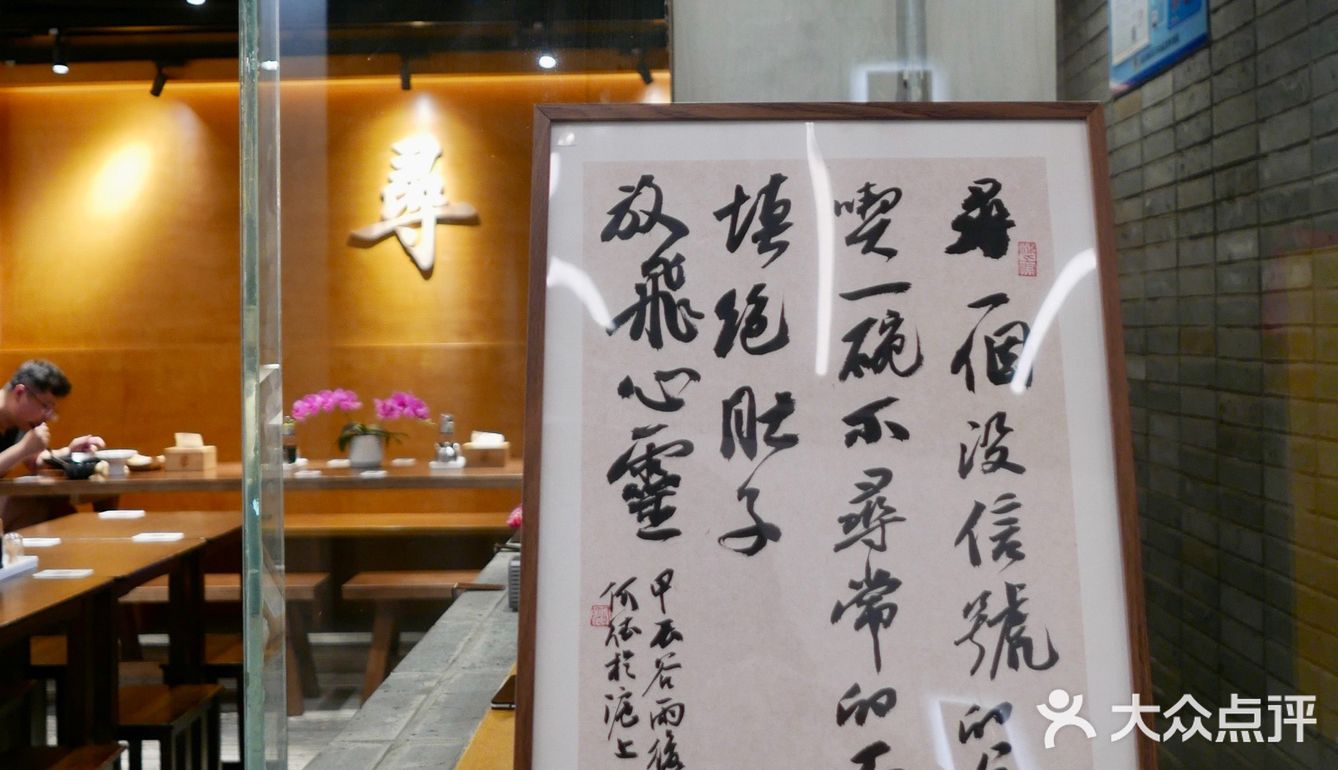 尋
尋一個没信號的
喫一碗不尋常的
填绝肚子
放飛心靈
甲辰谷雨後
何法於滬上
大众点评